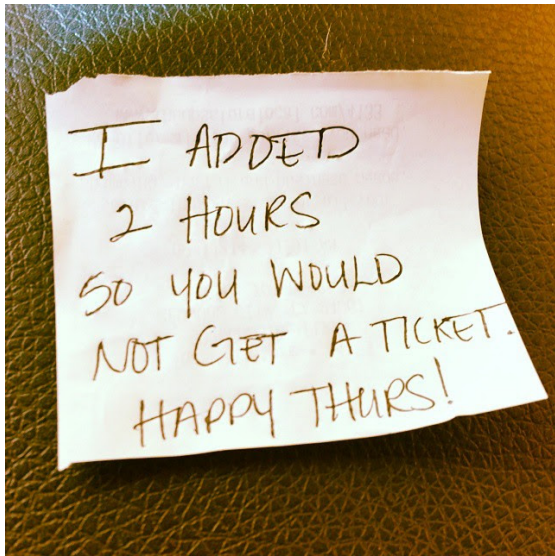 I ADDED
2 HOURS
SO YOU WOULD
NOT GET A TICKET.
HAPPY THURS!